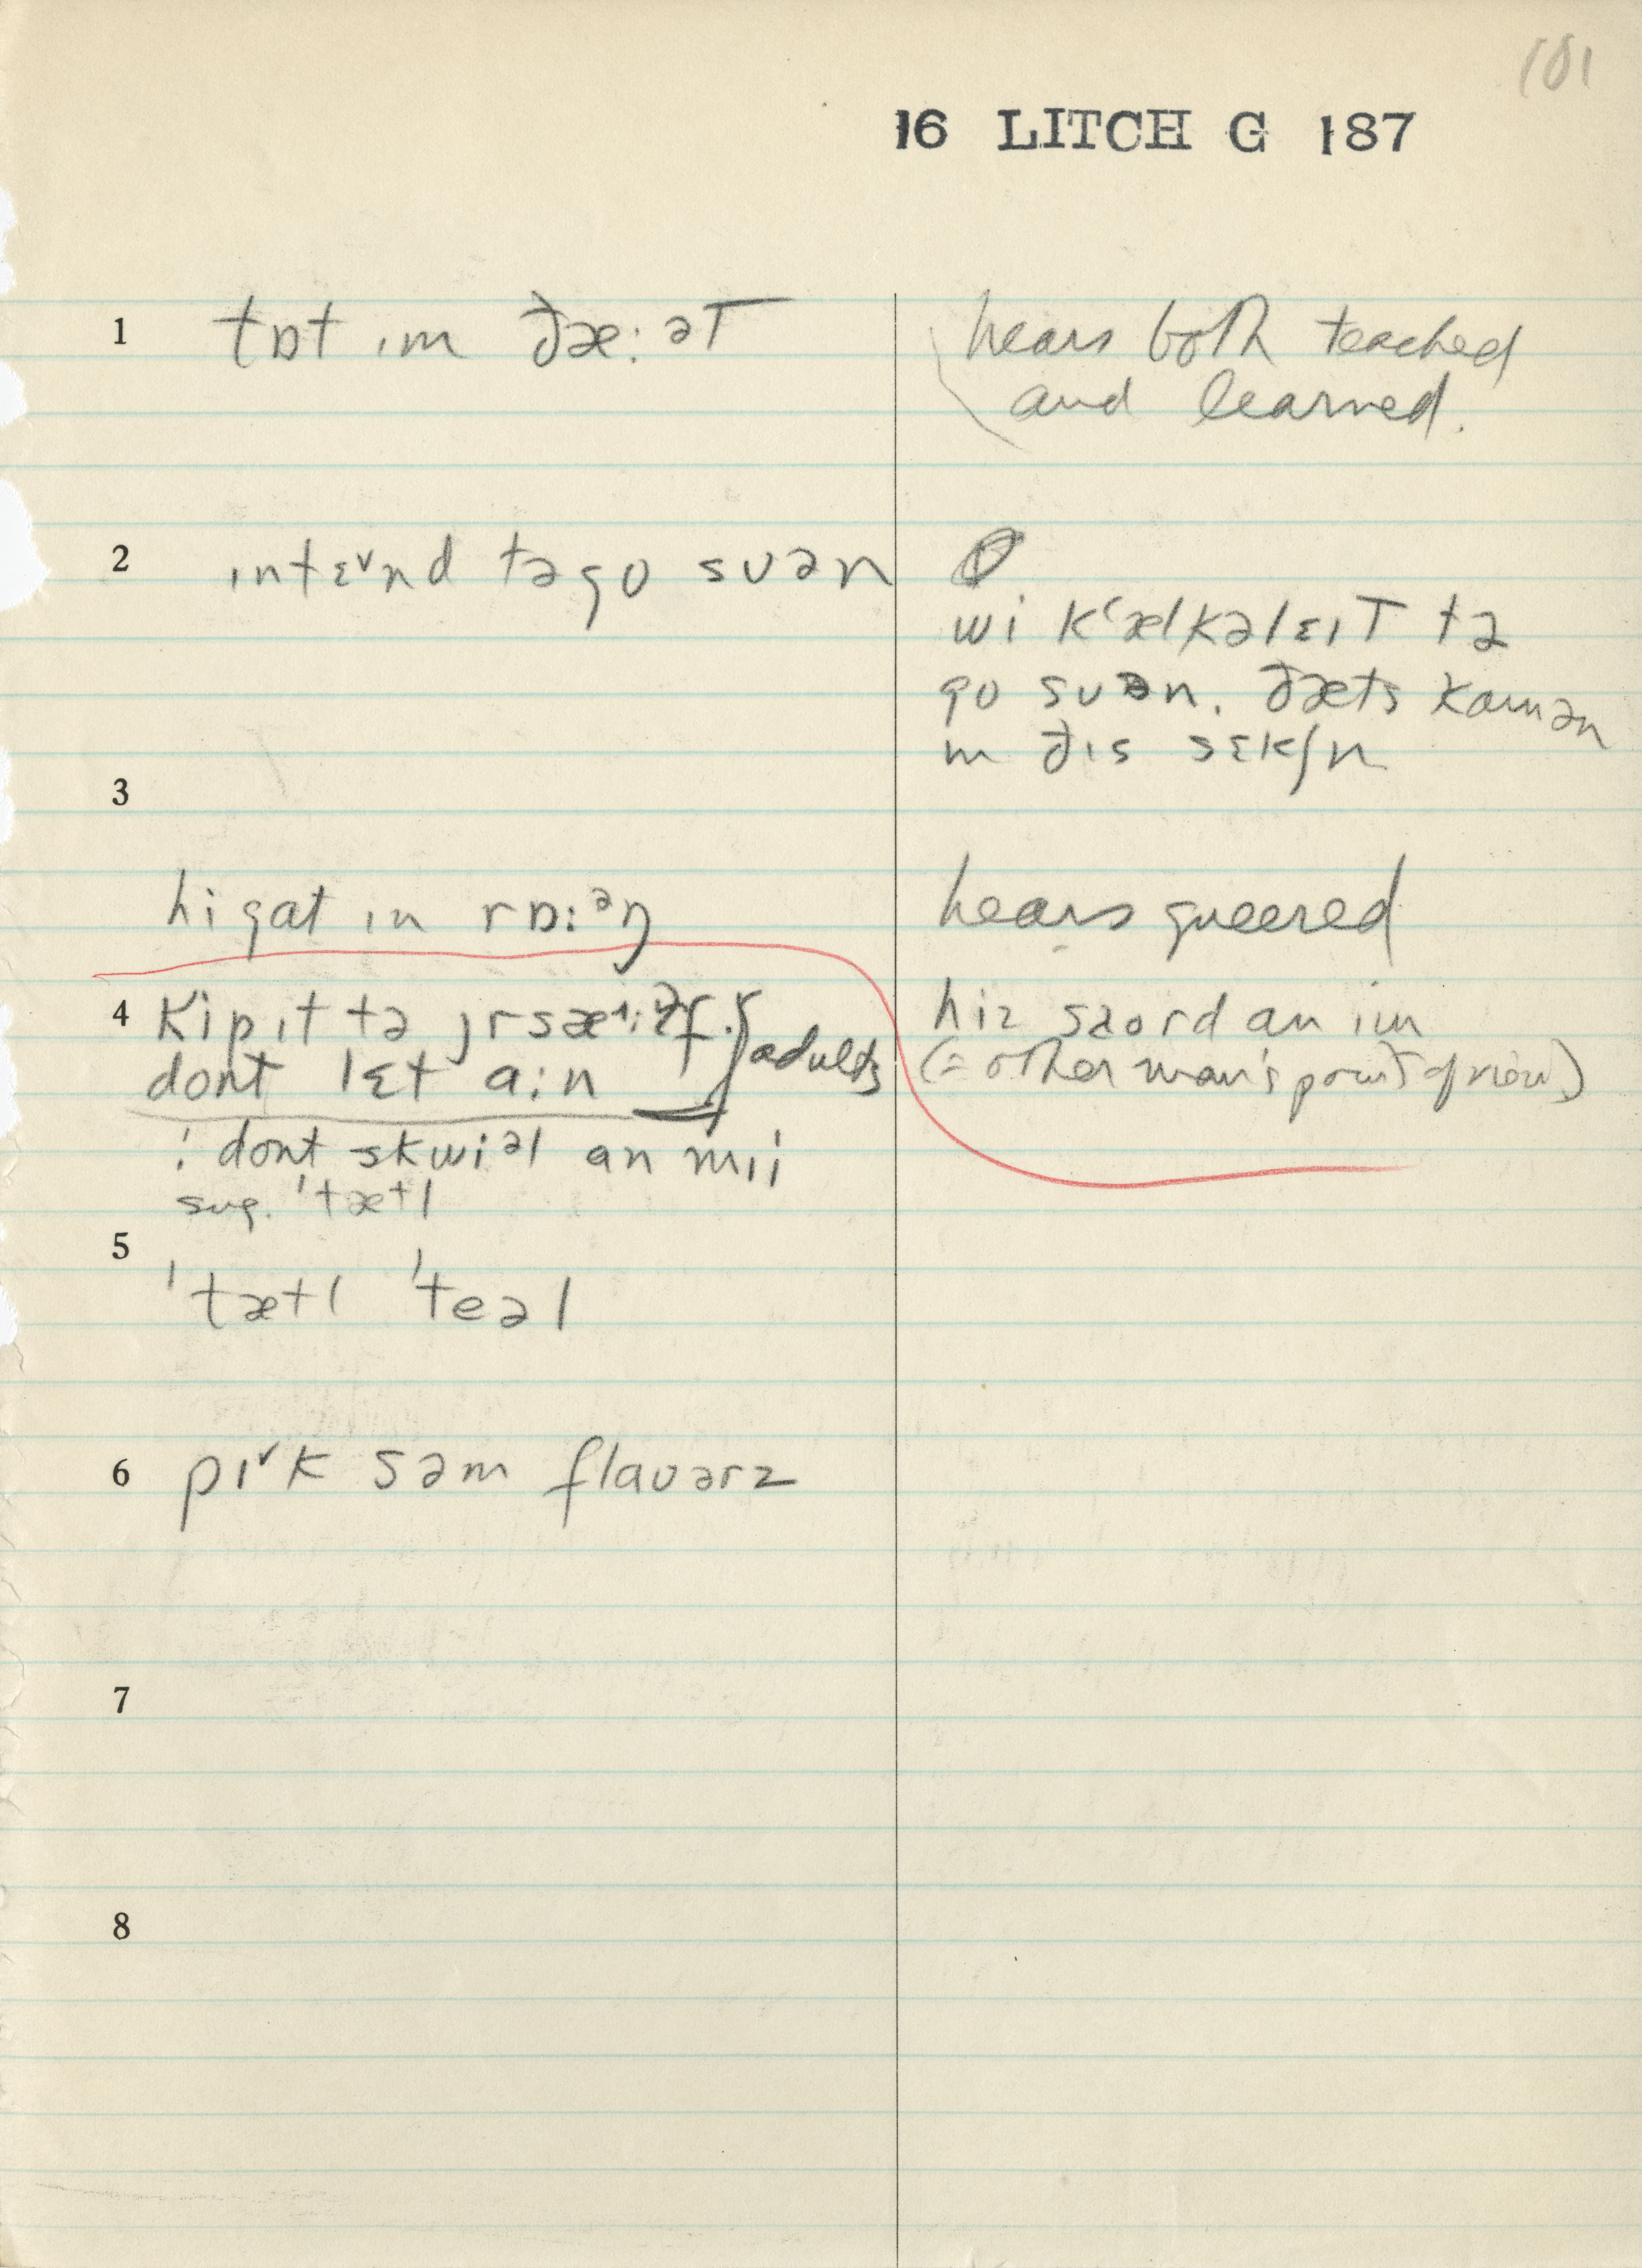 101
16 LITCH G 187
1 tɒt ɪm ðæ:əT
hears both teached
and learned.
2 ɪntɛ˅nd təgo suən
wi kʽælkəlɛɪT tə
go suən. ðæts kamən
ɪn ðɪs sɛkʃn
3
hi gat ɪn rɒ:ᵊŋ
hears queered
4 kip ɪt tə
dont lɛt a:n
adults
hiz saord an im
(= other man's point of view)
: dont skwiəl an mɪi
sug. 'tætl
5
'tætl 'teəl
6 pɪ˅k səm flauərz
7
8